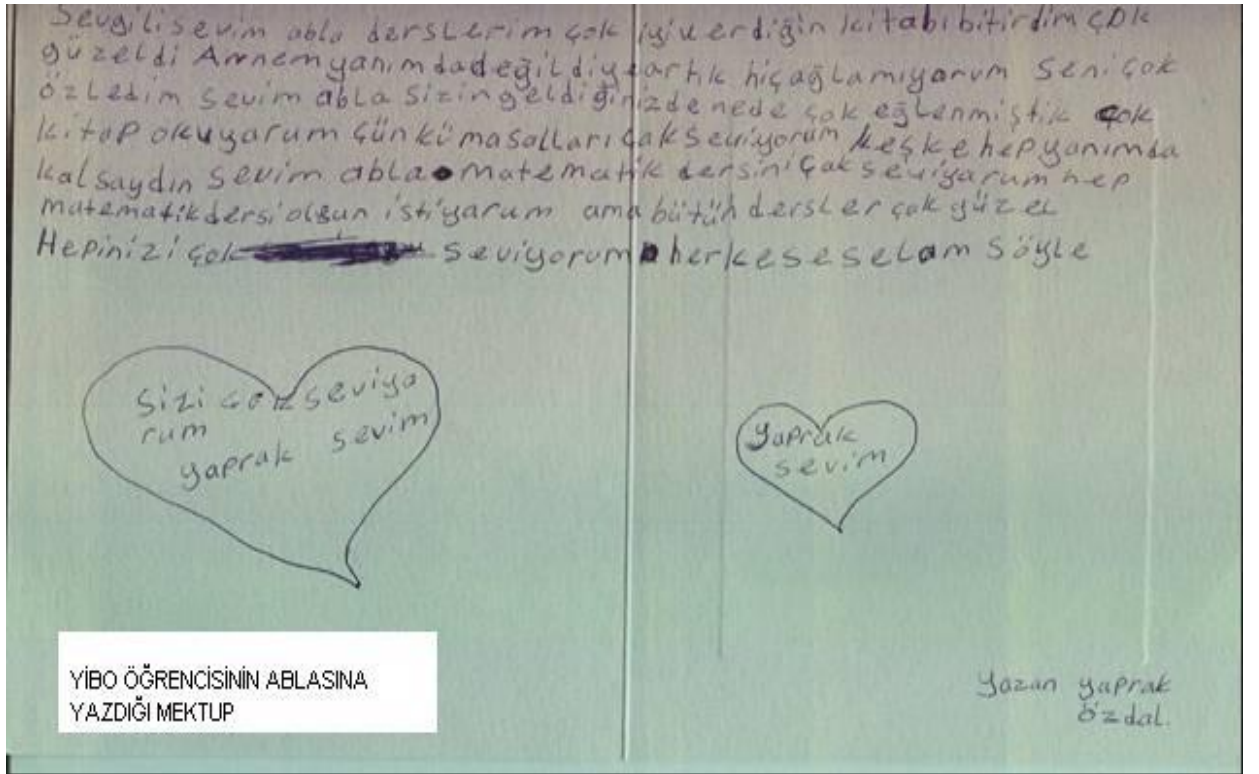 Sevgili sevim abla derslerim çok iyi verdiğin kitabı bitirdim çok
güzeldi Annem yanımda değil diye artık hiç ağlamıyorum seni çok
özledim sevim abla sizin geldiğinizde nede çok eğlenmiştik çok
kitap okuyarum çünkü masalları çak seviyorum keşke hep yanımda
kalsaydın sevim abla. matematik dersini çak seviyarum hep
matematik dersi olsun istiyarum ama bütüh dersler çok güzel
Hepinizi çok seviyorum herkese selam söyle
sizi çok seviya
rum
yaprak sevim
yaprak
sevim
YİBO ÖĞRENCİSİNİN ABLASINA
YAZDIĞI MEKTUP
Yazan yaprak
özdal.